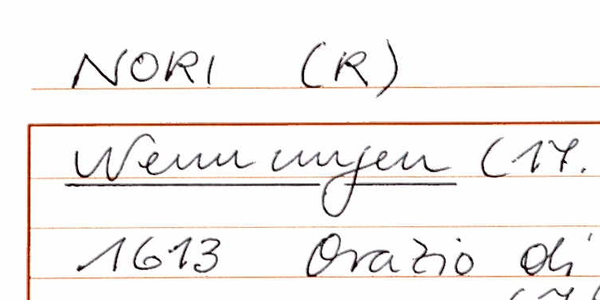 NORI (R)
Nennungen (17.
1613 Orazio di